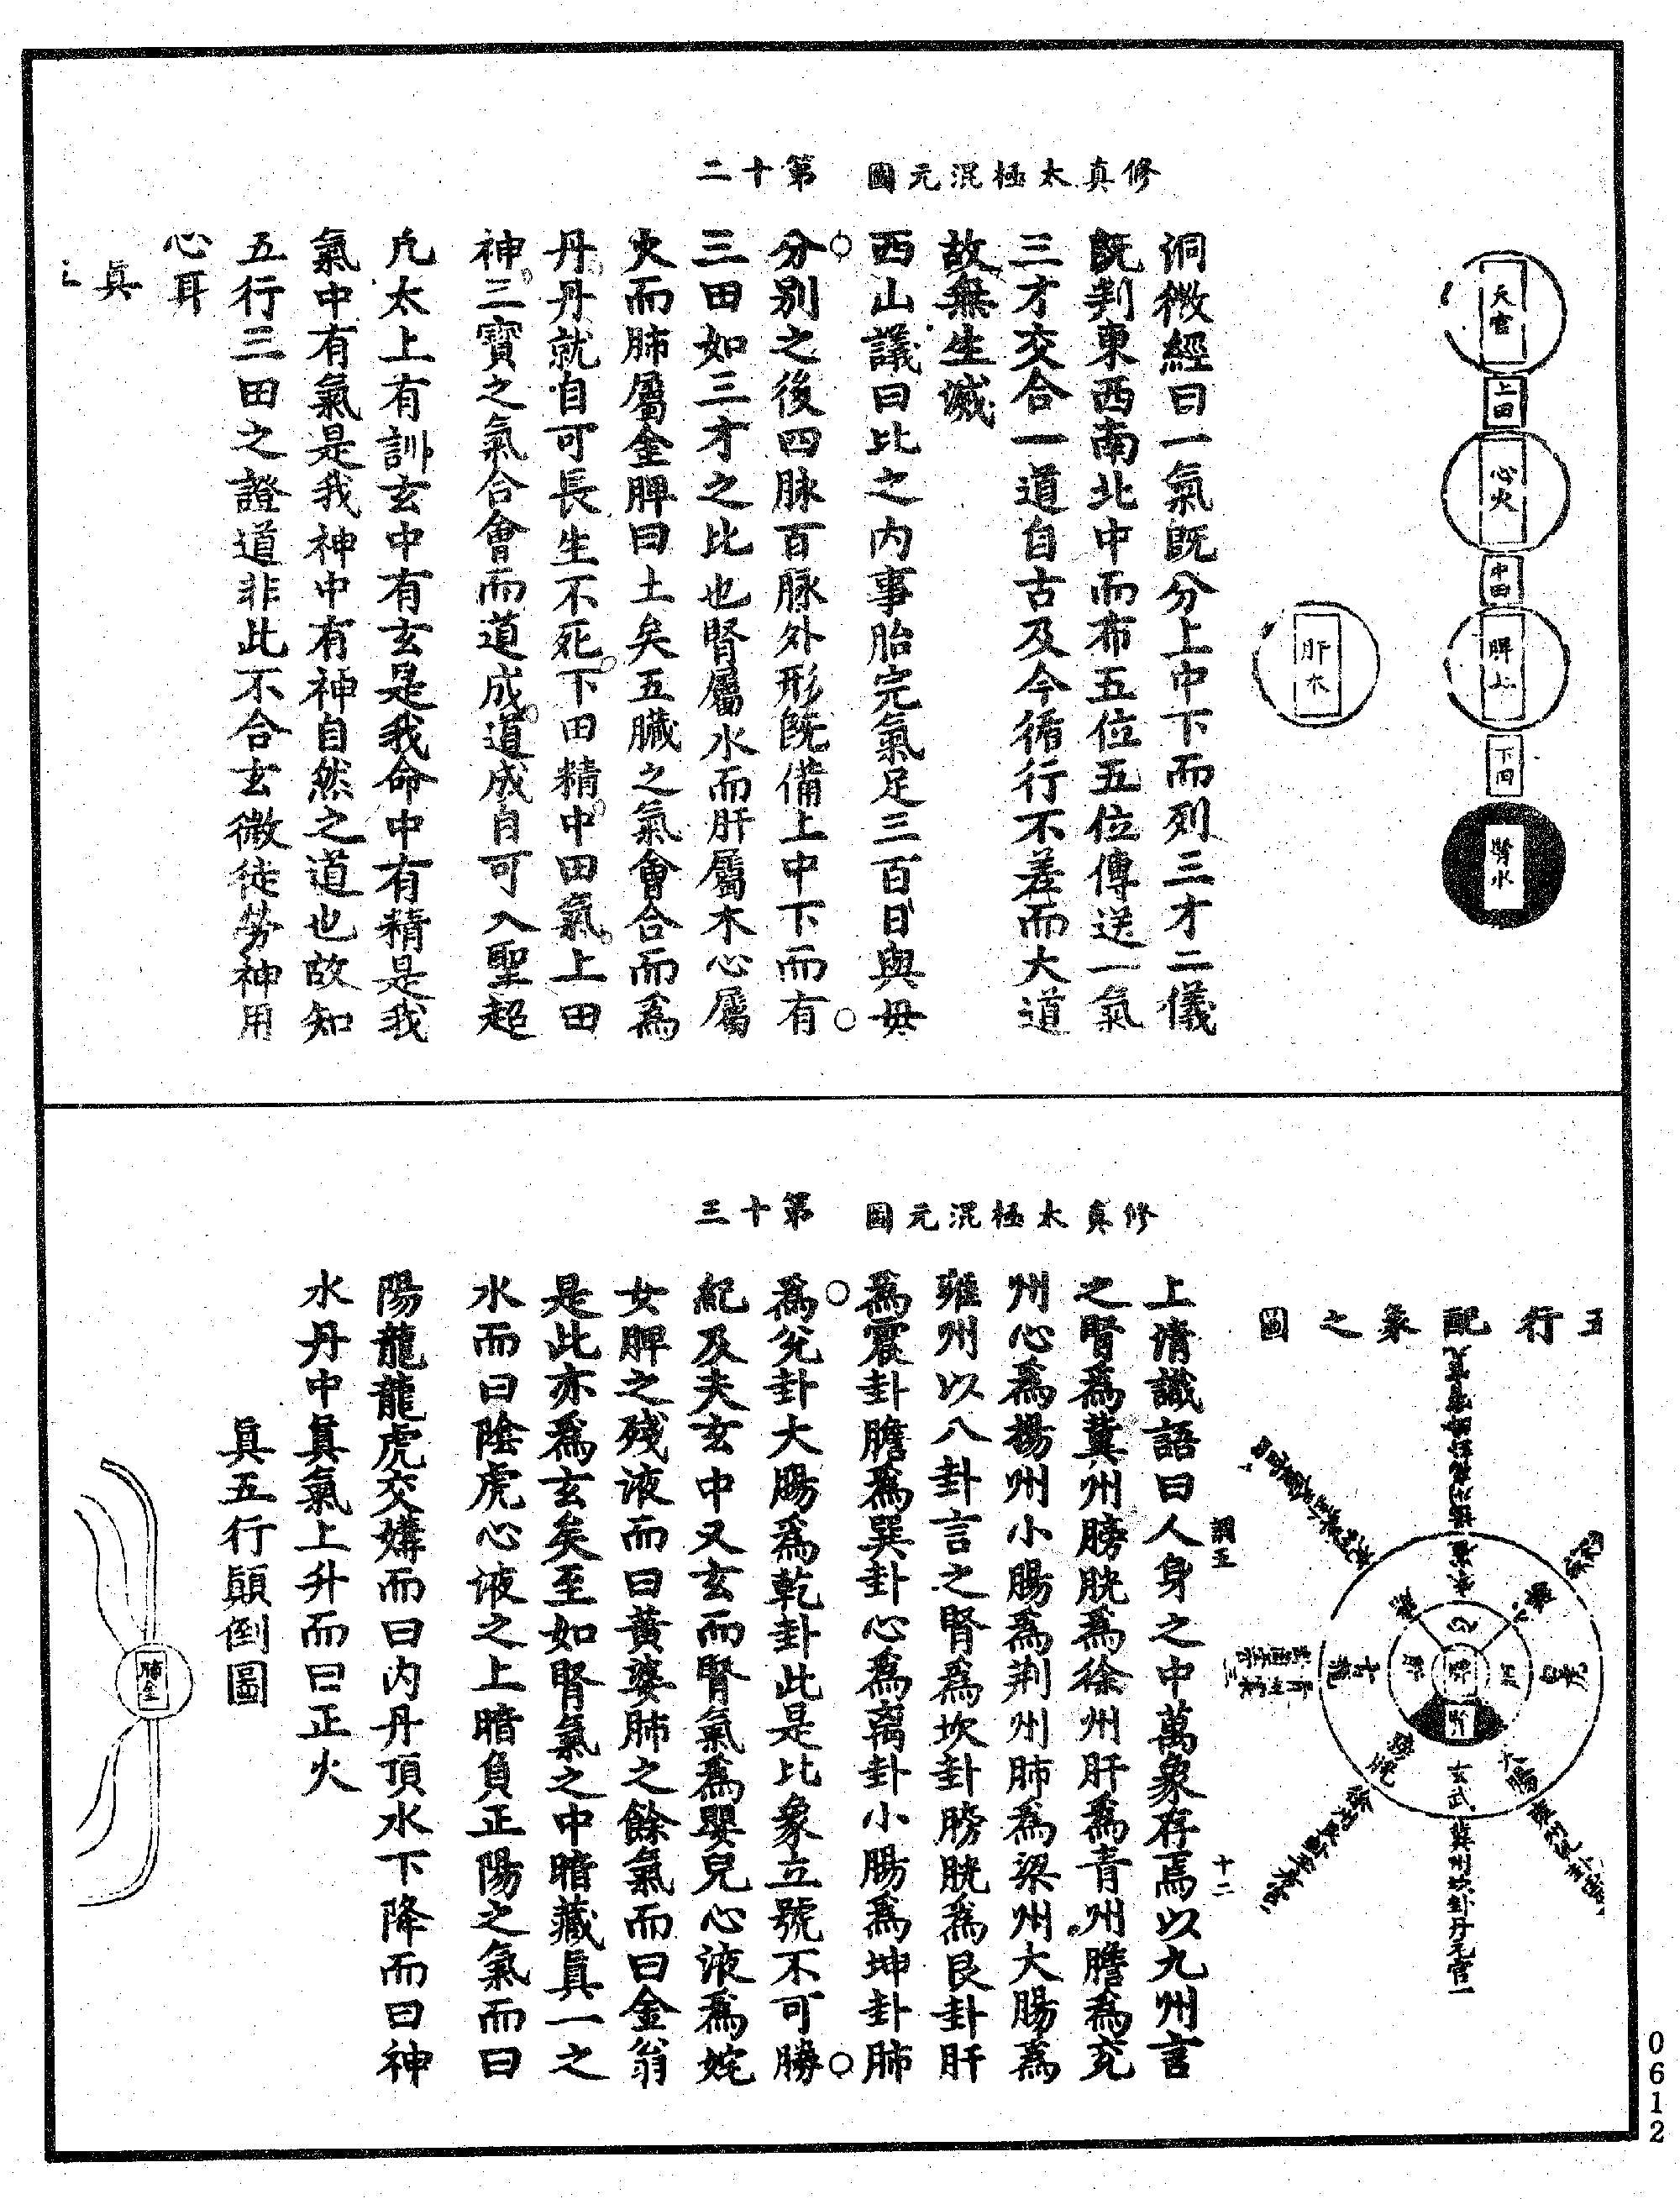 修真太極混元圖　第十二
天宮
上田
心火
中田
脾土
下田
腎水
肝木
洞微經曰一氣既分上中下而列三才二儀
既判東西南北中而布五位五位傳送一氣
三才交合一道自古及今循行不差而大道
故無生滅
西山議曰比之内事胎完氣足三百日與母
分別之後四脉百脉外形既備上中下而有
三田如三才之比也腎屬水而肝屬木心屬
火而肺屬金脾曰土矣五臟之氣會合而為
丹丹就自可長生不死下田精中田氣上田
神三寶之氣合會而道成道成自可入聖超
凡太上有訓玄中有玄是我命中有精是我
氣中有氣是我神中有神自然之道也故知
五行三田之證道非此不合玄微徒勞神用
心耳
真
修真太極混元圖　第十三
五行配象之圖
玄武冀州坎卦丹元宮一
調五
十二
上清識語曰人身之中萬象存焉以九州言
之腎為冀州膀胱為徐州肝為青州膽為兗
州心為揚州小腸為荆州肺為梁州大腸為
雍州以八卦言之腎為坎卦膀胱為艮卦肝
為震卦膽為巽卦心為离卦小腸為坤卦肺
為兌卦大腸為乾卦此是比象立號不可勝
紀及夫玄中又玄而腎氣為嬰兒心液為姹
女脾之殘液而曰黃婆肺之餘氣而曰金翁
是此亦為玄矣至如腎氣之中暗藏真一之
水而曰陰虎心液之上暗負正陽之氣而曰
陽龍龍虎交媾而曰内丹頂水下降而曰神
水丹中真氣上升而曰正火
真五行顛倒圖
肺金
0612